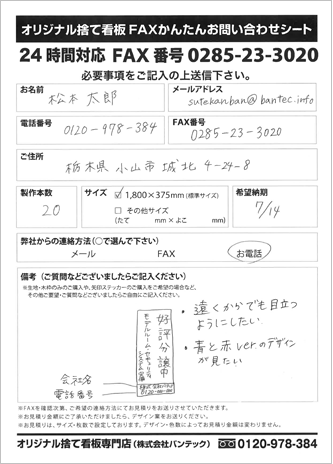 オリジナル捨て看板 FAXかんたんお問い合わせシート
24時間対応 FAX番号 0285-23-3020
必要事項をご記入の上送信下さい。
お名前
松本 太郎
メールアドレス
sutekanban@bantec.info
電話番号
0120-978-384
FAX番号
0285-23-3020
ご住所
栃木県 小山市 城北 4-24-8
製作本数
20
サイズ
☑ 1,800×375mm (標準サイズ)
□ その他サイズ
(たて mm × よこ mm)
希望納期
7/14
弊社からの連絡方法(○で選んで下さい)
メール FAX お電話
備考 (ご質問などございましたらご記入ください)
※生地・木枠のみのご購入や、矢印ステッカーのご購入をご希望の場合など、
その他ご要望・ご質問などございましたらご自由にご記入ください。
好評分譲中
会社名
電話番号
・遠くからでも目立つ
ようにしたい
・青と赤verのデザイン
が見たい
※FAXを確認次第、ご希望の連絡方法にてお見積りをお送りさせていただきます。
※お見積り金額にご了承いただけましたら、デザイン案をお送りください。
※お見積りは、サイズ・枚数で設定しております。デザイン・色数によってお見積り金額は変わりません。
オリジナル捨て看板専門店 (株式会社バンテック) 0120-978-384